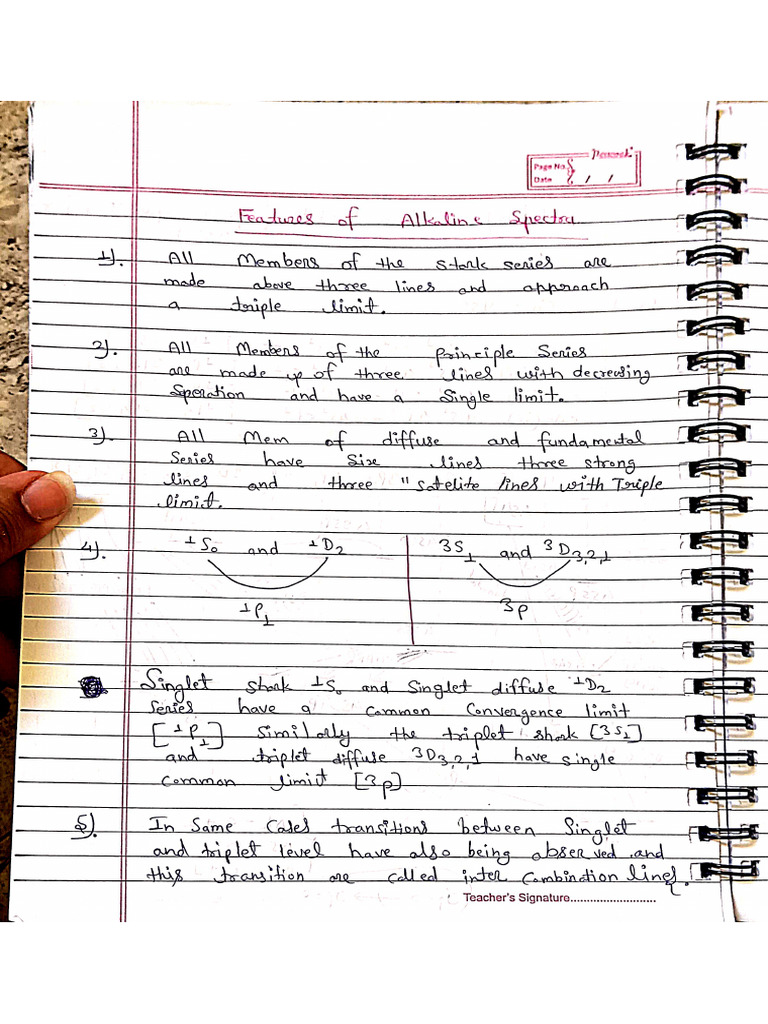 Peacock
Page No. 8
Date / /
Features of Alkaline Spectra
1). All Members of the stark series are
made above three lines and approach
a triple limit.
2). All Members of the principle Series
are made up of three lines with decreasing
Speration and have a Single limit.
3). All Mem of diffuse and fundamental
Series have Six lines three strong
lines and three "satelite lines with Triple
limit.
4). ¹S₀ and ¹D₂ ³S₁ and ³D₃,₂,₁
¹P₁ ³P
Singlet shark ¹S₀ and Singlet diffuse ¹D₂
Series have a common Convergence limit
[¹P₁] Similarly the triplet shark [³S₁]
and triplet diffuse ³D₃,₂,₁ have single
common limit [³P]
5). In Same Cases transitions between Singlet
and triplet level have also being observed and
this transition are called inter Combination lines.
Teacher's Signature..........................